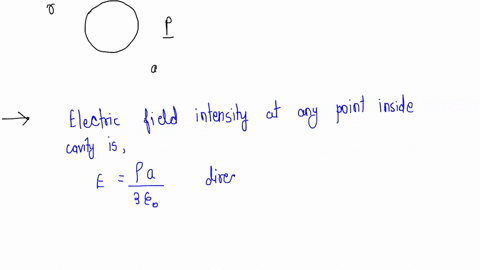 r
P
a
→ Electric field intensity at any point inside
cavity is,
E = ρa / 3ε₀ dire